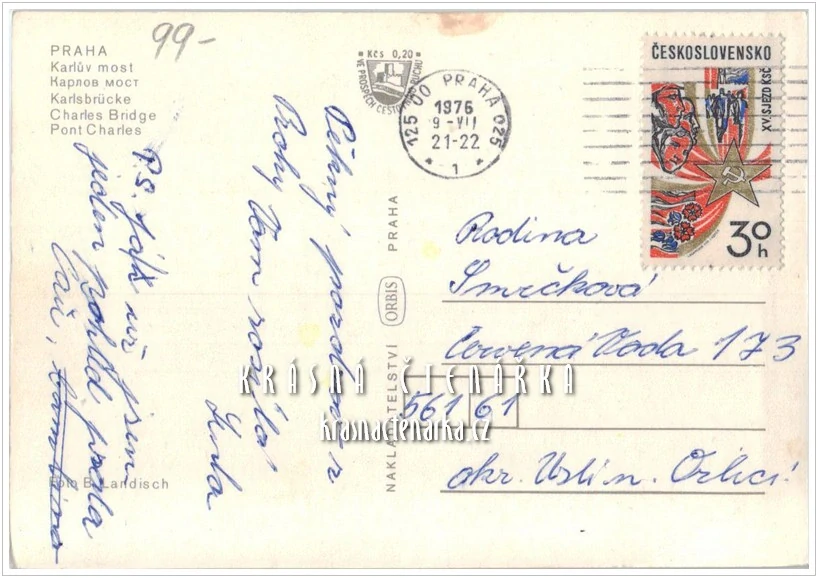 PRAHA
Karlův most
Карлов мост
Karlsbrücke
Charles Bridge
Pont Charles
99-
Kčs 0,20
VE PROSPĚCH CESTOVNÍHO RUCHU
125 00 PRAHA 025
1976
9-VII
21-22
1
ČESKOSLOVENSKO
XV. SJEZD KSČ
30h
Pěkný pozdrav z
Prahy Vám posílá
P.S. již jsem
jeden pohled poslala
NAKLADATELSTVÍ ORBIS PRAHA
Rodina
Smrčková
Červená Voda 173
561 61
okr. Ústí n. Orlicí
Foto B. Landisch
KRÁSNÁ ČTENÁŘKA
krasnactenarka.cz